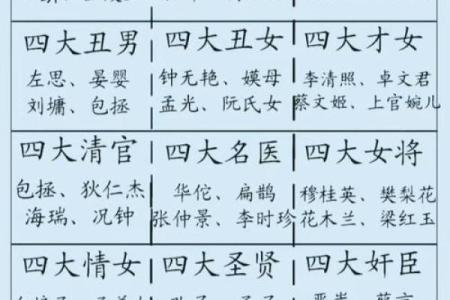 四大丑男 四大丑女 四大才女
左思、晏婴 钟无艳、嫫母 李清照、卓文君
刘墉、包拯 孟光、阮氏女 蔡文姬、上官婉儿
四大清官 四大名医 四大女将
包拯、狄仁杰 华佗、扁鹊 穆桂英、樊梨花
海瑞、况钟 张仲景、李时珍 花木兰、梁红玉
四大情女 四大圣贤 四大奸臣